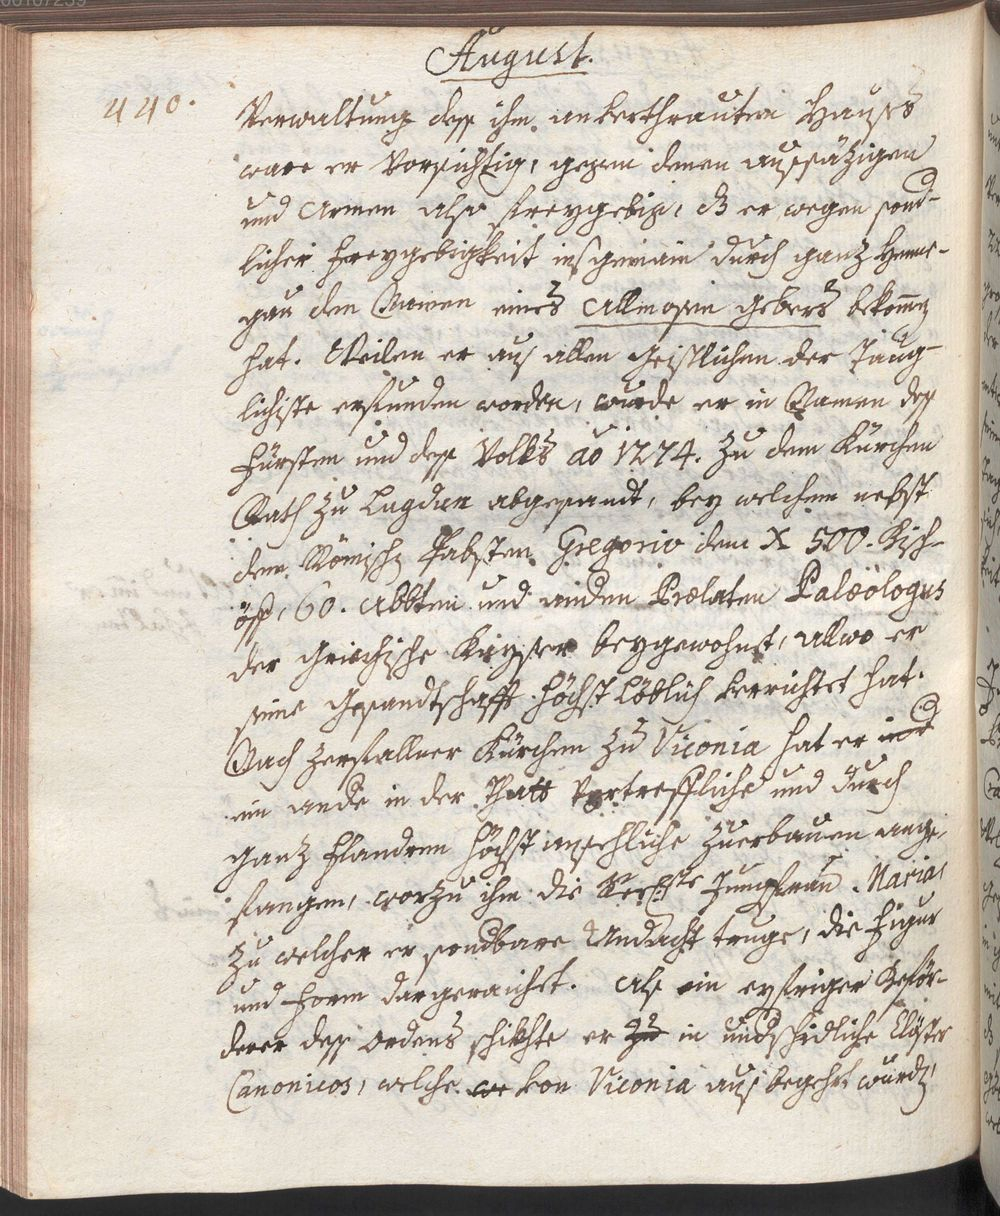 00107239
August.
440.
Verwaltung dess ihm ankerthrauten Hauses
ware er Vorsichtig, gegen denen aussäzigen
und Armen also freygebig, dß er wegen sond-
licher freygebigkeit insgemain durch ganz Henne-
gau den Namen eines Allmosen gebers bekomen
hat. Weilen er aus allen Geistlichen der Taug-
lichiste erfunden worden, wurde er in Namen dess
Fürsten und dess Volks ao 1274. zu dem Kürchen
Rath zu Lugdun abgesandt, bey welchem nebst
dem Römisch Pabsten Gregorio dem X 500. Bisch-
öff, 60. Abbten und anden Prælaten Palæologus
der Griechische Kayser beygewohnt, allwo er
seine Gesandtschafft höchst löblich verrichtet hat.
Nach zerfallner Kürchen zu Viconia hat er
ein ande in der Thatt Vortreffliche und durch
ganz Flandren höchst ansechliche zuerbauen ange-
fangen, worzu ihm die Jungfrau Maria,
zu welcher er sondbare Andacht truge, die Figur
und Form dargeraicht. Als ein eyfriger Beför-
derer dess Ordens schikhte er zu in undschidliche Clöster
Canonicos, welche we von Viconia aus begehrt wurdn,